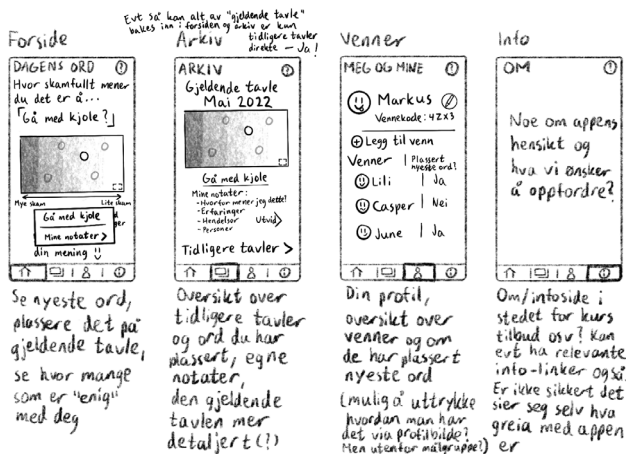 Evt så kan alt av "gjeldende tavle"
bakes inn i forsiden og arkiv er kun
tidligere tavler
direkte — Ja!
Forside
DAGENS ORD ?
Hvor skamfullt mener
du det er å...
「Gå med kjole?」
Mye skam
Lite skam
Gå med kjole
Mine notater >
din mening
Se nyeste ord,
plassere det på
gjeldende tavle,
se hvor mange
som er "enig"
med deg
Arkiv
ARKIV ?
Gjeldende tavle
Mai 2022
Gå med kjole
Mine notater:
- Hvorfor mener jeg dette!
- Erfaringer
- Hendelser
- Personer
Utvid >
Tidligere tavler >
Oversikt over
tidligere tavler
og ord du har
plassert, egne
notater,
den gjeldende
tavlen mer
detaljert(?)
Venner
MEG OG MINE ?
Markus
Vennekode: 4ZX3
+ Legg til venn
Venner | Plassert
nyeste ord?
Lili | Ja
Casper | Nei
June | Ja
Din profil,
oversikt over
venner og om
de har plassert
nyeste ord
(mulig å uttrykke
hvordan man har
det via profilbilde?
Men utenfor målgruppe?)
Info
OM ?
Noe om appens
hensikt og
hva vi ønsker
å oppfordre?
Om/infoside i
stedet for kurs
tilbud osv? Kan
evt ha relevante
info-linker også.
Er ikke sikkert det
sier seg selv hva
greia med appen
er